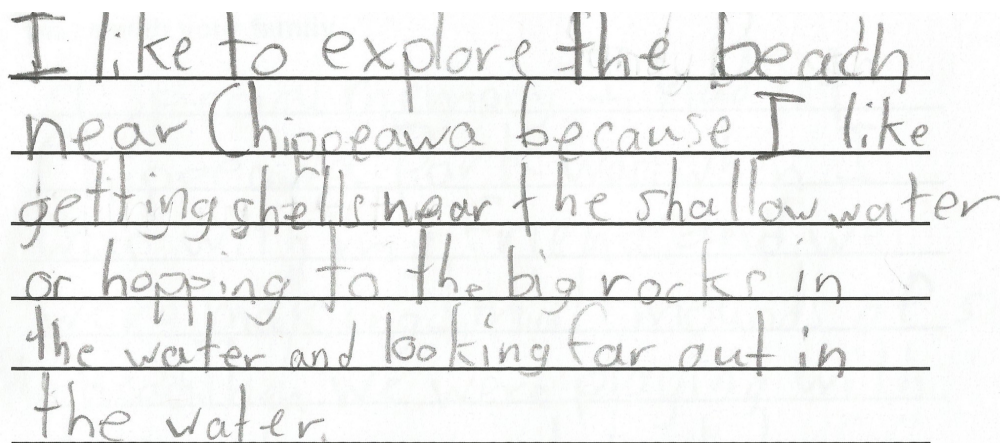 I like to explore the beach
near Chippeawa because I like
getting shells near the shallow water
or hopping to the big rocks in
the water and looking far out in
the water.